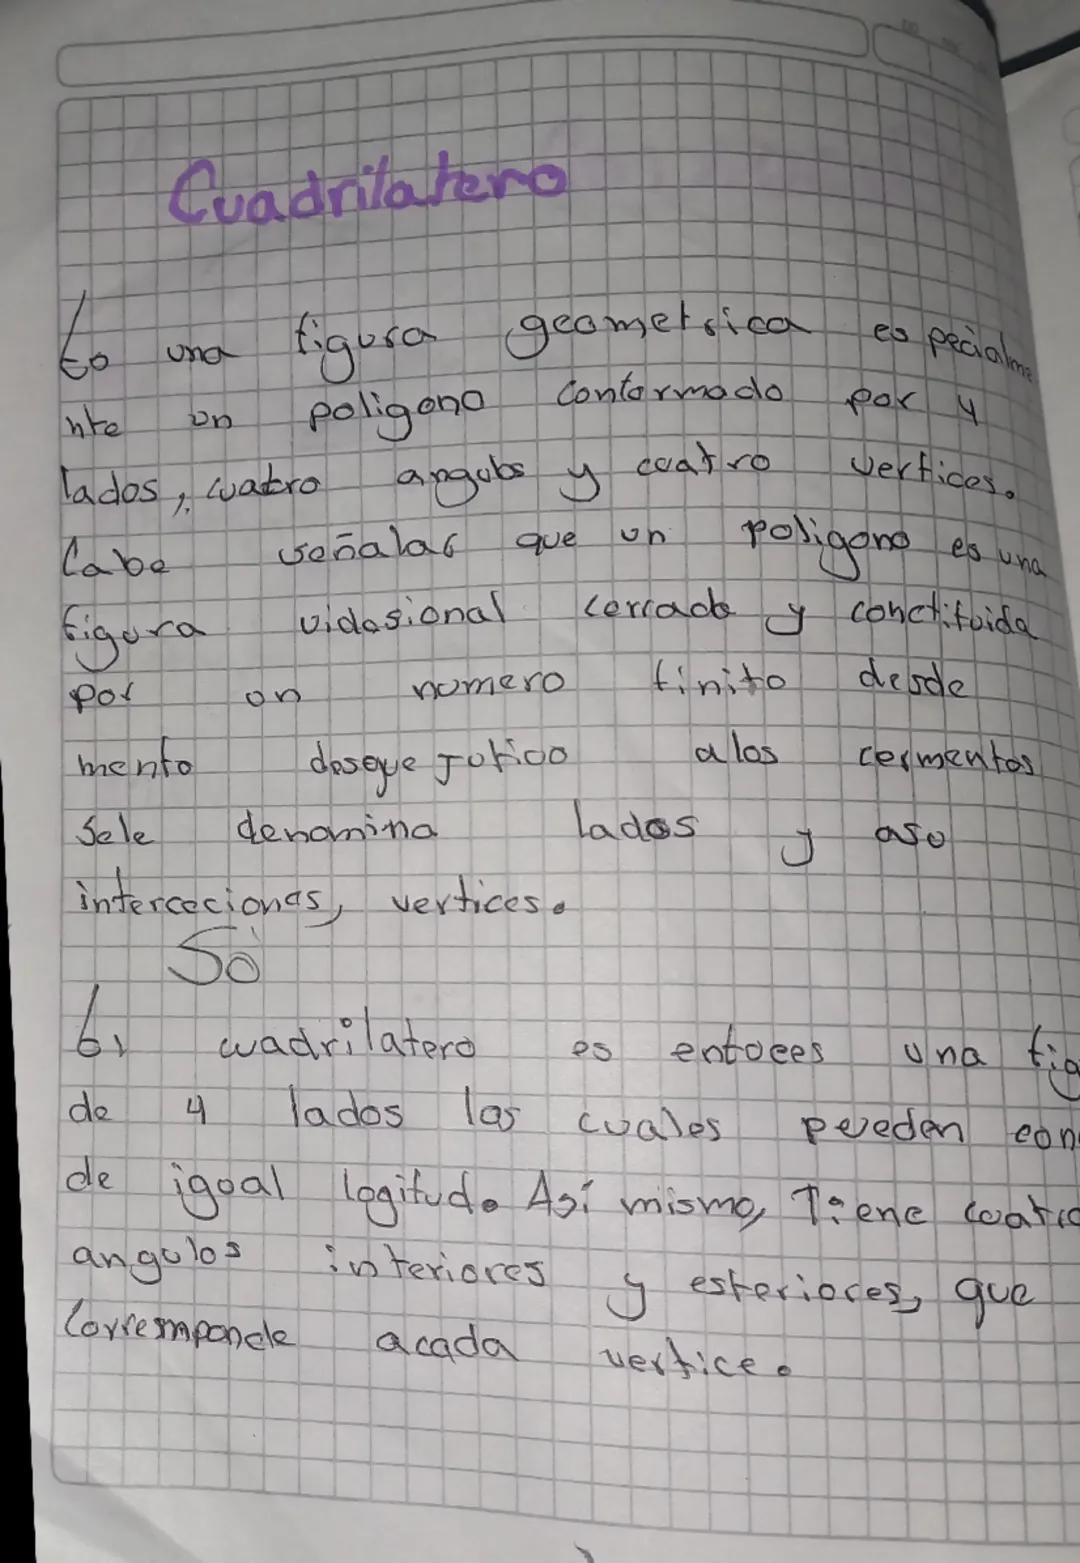 Cuadrilatero
Es una figura geometrica especialme
nte un poligono conformado por 4
lados, cuatro angulos y cuatro vertices.
Cabe señalar que un poligono es una
figura vidasional cerrado y conctituida
por un numero finito desde
mento alos cermentos
Sele denomina lados y aso
interceciones, vertices.
So
El cuadrilatero es entoces una fig
de 4 lados los cuales pueden con
de igual logitud. Así mismo, Tiene cuatro
angulos interiores y esteriores, que
Corremponde acada vertice.